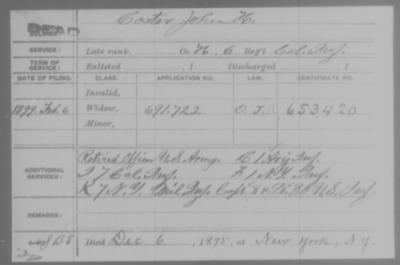 Coster John H.
SOLDIER:
SERVICE: Late rank, Co. H, 6 Reg't Cal. Inf.
TERM OF SERVICE: Enlisted , 1 Discharged , 1
DATE OF FILING. CLASS. APPLICATION NO. LAW. CERTIFICATE NO.
Invalid,
1899. Feb. 6 Widow, 691.722 653.420
Minor,
ADDITIONAL SERVICES: Retired Officer U.S. Army. C 1 Inf.
I 7 Cal. Inf. F 1 N.Y. Inf.
K 7 N.Y. Mil. Inf. Capt 8 U.S. Inf.
REMARKS:
Died Dec 6, 1895, at New York, N.Y.